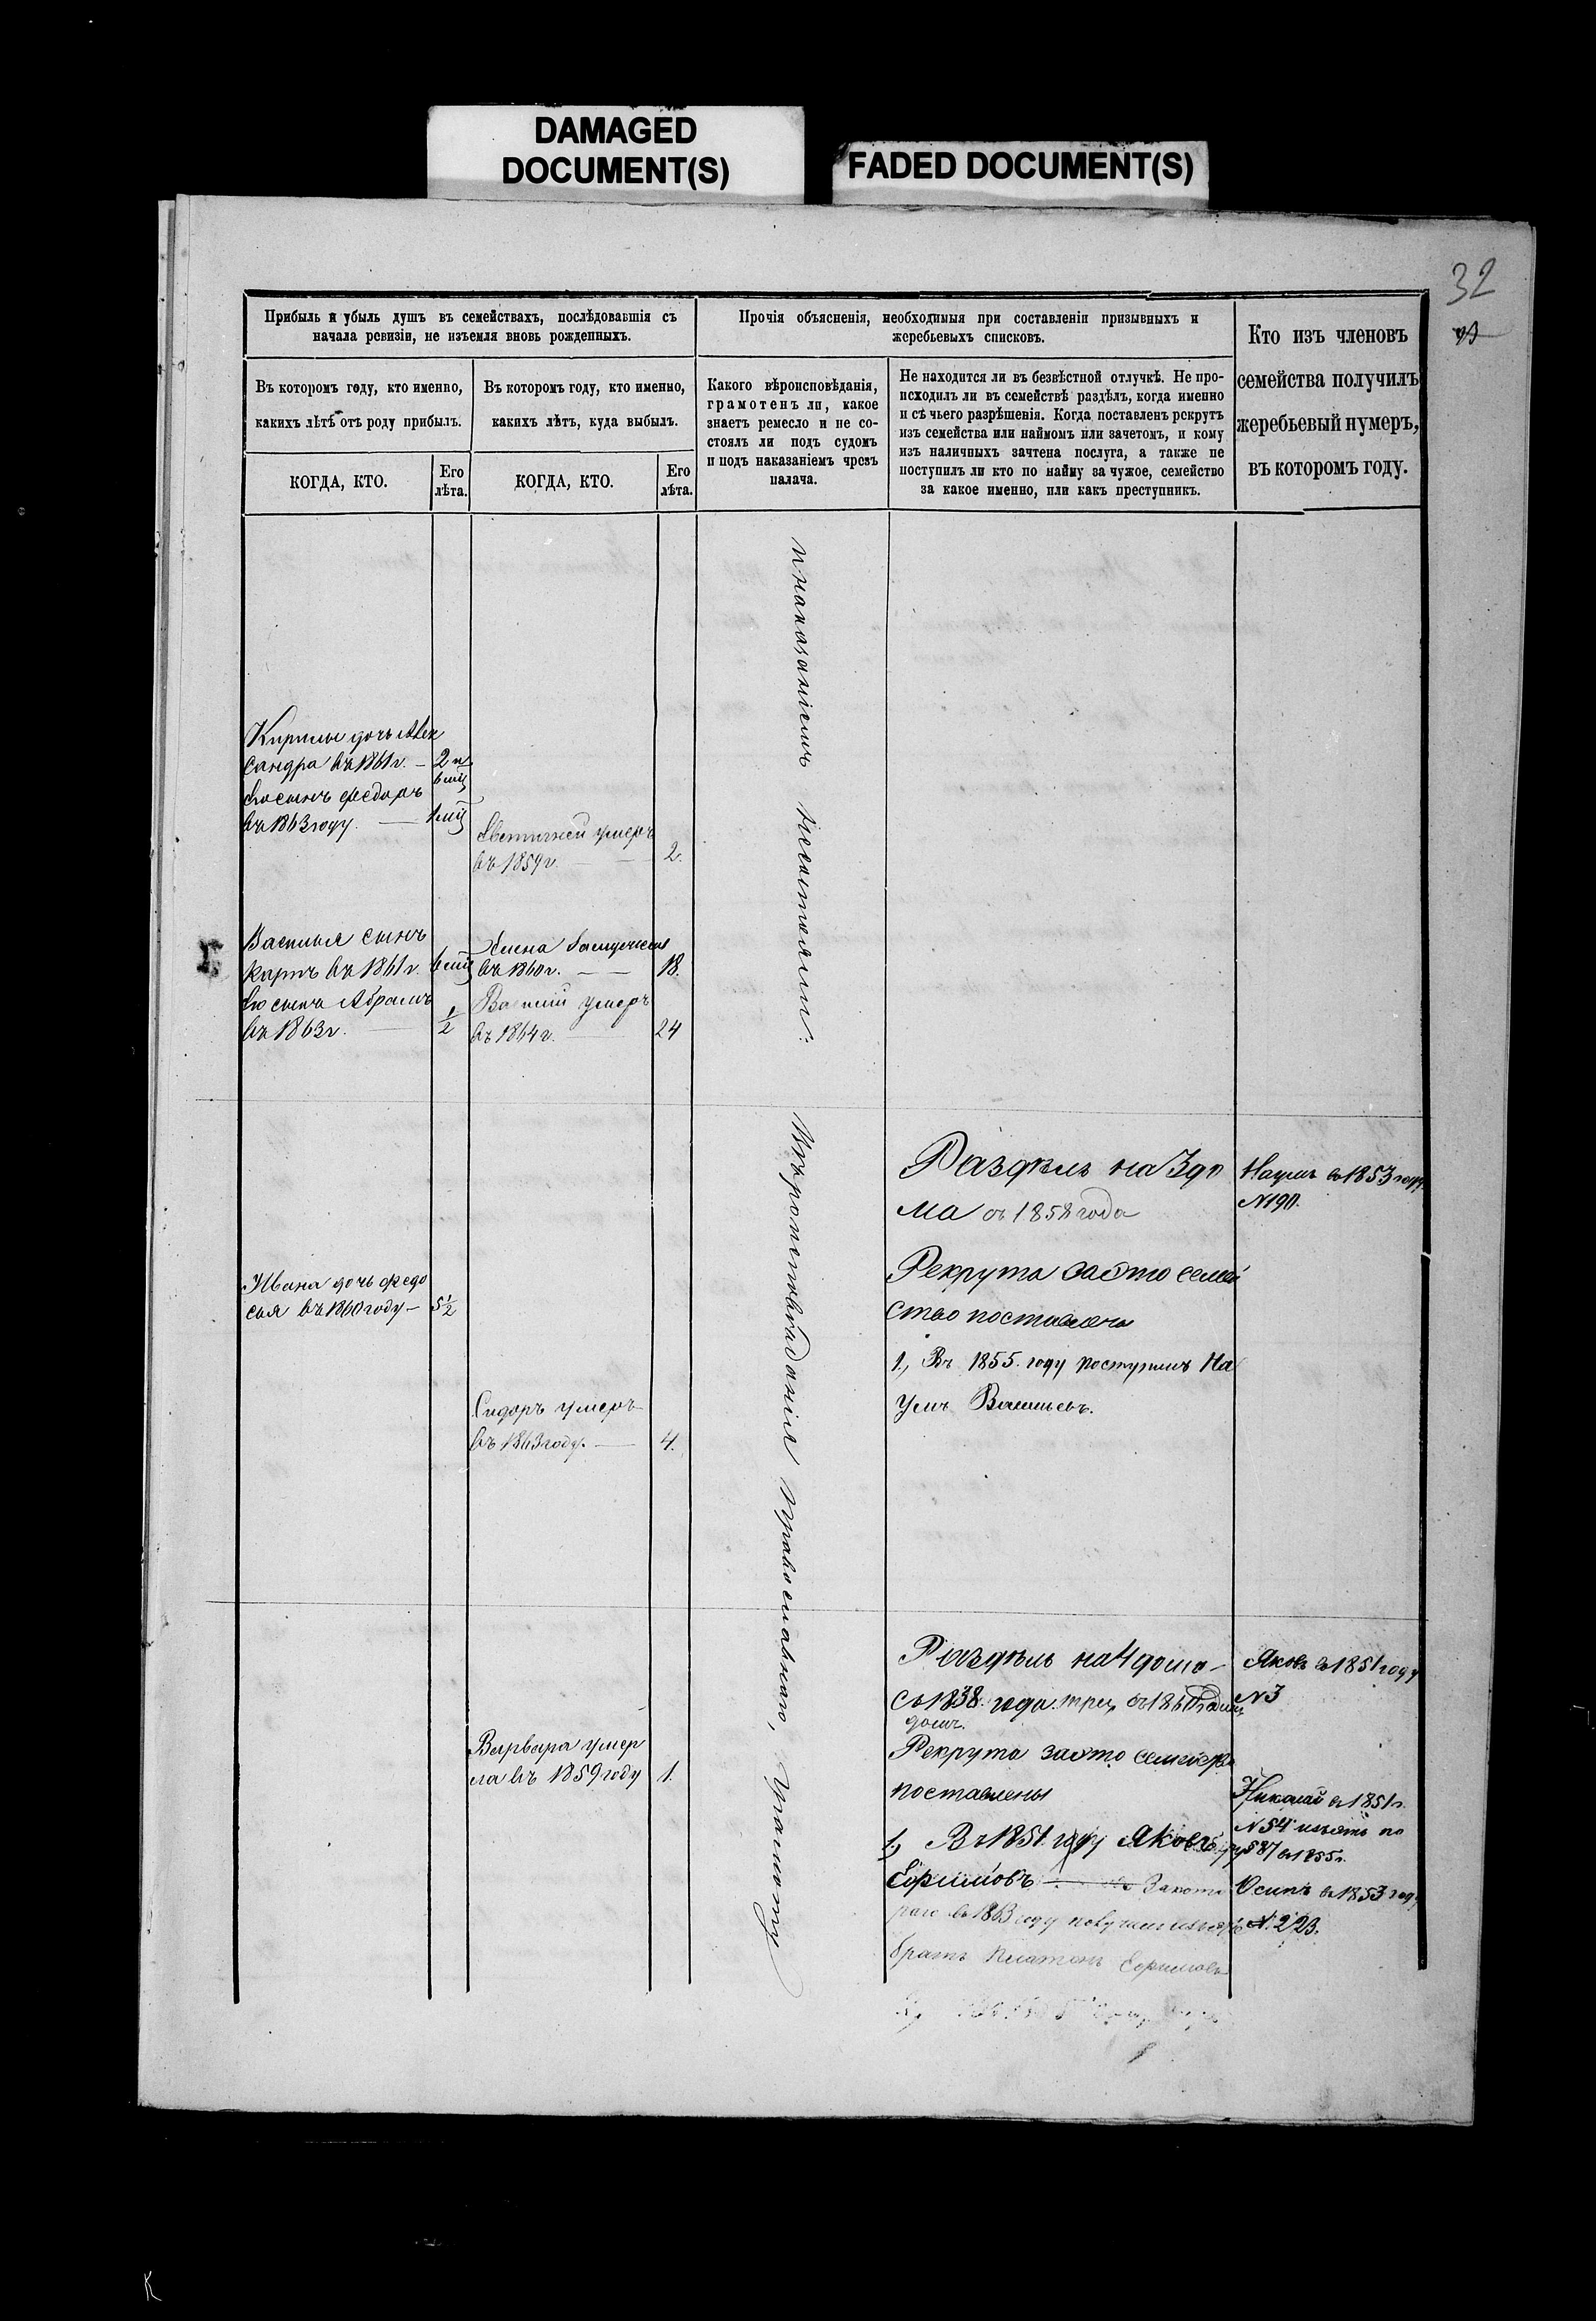 DAMAGED
DOCUMENT(S)
FADED DOCUMENT(S)
32
Прибыль и убыль душъ въ семействахъ, послѣдовавшія съ
начала ревизіи, не изъемля вновь рожденныхъ.
Прочія объясненія, необходимыя при составленіи призывныхъ и
жеребьевыхъ списковъ.
Кто изъ членовъ
семейства получилъ
жеребьевый нумеръ,
въ которомъ году.
Въ которомъ году, кто именно,
какихъ лѣтѣ отъ роду прибылъ.
Въ которомъ году, кто именно,
какихъ лѣтъ, куда выбылъ.
Какого вѣроисповѣданія,
грамотенъ ли, какое
знаетъ ремесло и не со-
стоялъ ли подъ судомъ
и подъ наказаніемъ чрезъ
палача.
Не находится ли въ безвѣстной отлучкѣ. Не про-
исходилъ ли въ семействѣ раздѣлъ, когда именно
и съ чьего разрѣшенія. Когда поставленъ рекрутъ
изъ семейства или наймомъ или зачетомъ, и кому
изъ наличныхъ зачтена послуга, а также не
поступилъ ли кто по найму за чужое, семейство
за какое именно, или какъ преступникъ.
КОГДА, КТО.
Его
лѣта.
КОГДА, КТО.
Его
лѣта.
Кирилы дочь Алек
сандра въ 1861 г. — 2 и
6 мѣц
его сынъ Федоръ
въ 1863 году. — 1 мѣц
умеръ
въ 1859 г. — 2.
Василья сынъ
Карпъ въ 1861 г. 6 мѣц
его сынъ Абрамъ
въ 1863 г. — 1/2
Елена замужемъ
въ 1860 г. — 18.
Василий умеръ
въ 1864 г. — 24
Ивана дочь Федо
сья въ 1860 году — 5 1/2
Сидоръ умеръ
въ 1863 году. — 4.
Варвара умер
ла въ 1859 году 1.
Вѣроисповѣданія православнаго, грамоту
и наказаніемъ несостояли.
Раздѣлъ на 3 до
ма съ 1858 года
Рекрута за это семей
ство поставлены
1., Въ 1855. году поступилъ На
умъ Васильевъ.
Наумъ въ 1853 году
N 190.
Раздѣлъ на 4 дома —
съ 1838. года
домъ.
Рекрута за это семейство
поставлены
1., Въ 1851. году Яковъ
Ефимовъ За кото
раго въ 1863 году получилъ
братъ Платонъ Ефимовъ
Яковъ въ 1851 году
N 3
Николай въ 1851 г.
N 54
587 въ 1855 г.
Осипъ въ 1853 году
N. 223.
К